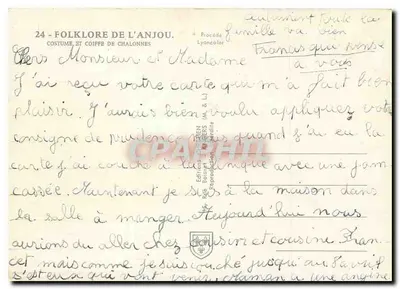 seulement toute la
famille va bien
Francis qui pense
à vous
24 - FOLKLORE DE L'ANJOU.
COSTUME ET COIFFE DE CHALONNES
Procédé
Lyonnaise
Chers Monsieur et Madame
J'ai reçu votre carte qui m'a fait bien
plaisir. J'aurais bien voulu appliquez votre
consigne de prudence mais quand j'ai eu la
carte j'ai couché à la clinique avec une jambe
cassée. Maintenant je suis à la maison dans
la salle à manger. Aujourd'hui nous
aurions du aller chez cousin et cousine Fran
cet mais comme je suis couché jusqu'au 8 avril
s'est eux qui vont venir. Maman a une angine
CPARAMA.COM